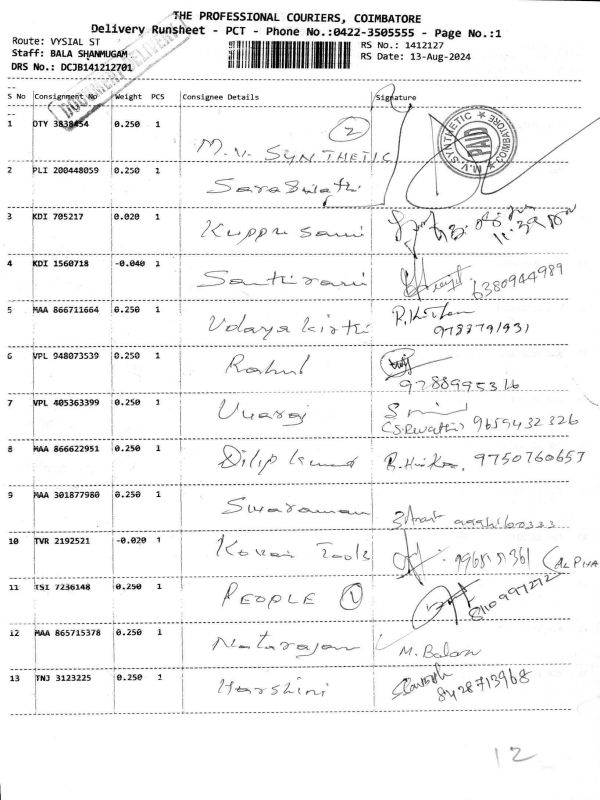 THE PROFESSIONAL COURIERS, COIMBATORE
Delivery Runsheet - PCT - Phone No.:0422-3505555 - Page No.:1
Route: VYSIAL ST
Staff: BALA SHANMUGAM
DRS No.: DCJB141212701
RS No.: 1412127
RS Date: 13-Aug-2024
DOCUMENT DELIVERED
S No Consignment No Weight PCS Consignee Details Signature
1 DTY 3838454 0.250 1 M.V. SYNTHETIC 2
M.V. SYNTHETIC PAID COIMBATORE
2 PLI 200448059 0.250 1 Saraswathi
3 KDI 705217 0.020 1 Kuppu Sami
4 KDI 1560718 -0.040 1 Santhi rani 6380944989
5 MAA 866711664 0.250 1 Udaya kirthi 9787791931
6 VPL 948073539 0.250 1 Rahul 9788995316
7 VPL 405363399 0.250 1 Uvaraj (S.Revathi) 9659432326
8 MAA 866622951 0.250 1 Dilip kumar 9750760657
9 MAA 301877980 0.250 1 Sivaraman
10 TVR 2192521 -0.020 1 Kovai Tools (ALPHA
11 TSI 7236148 0.250 1 PEOPLE 1 8110991272
12 MAA 865715378 0.250 1 Natarajan M. Balan
13 TNJ 3123225 0.250 1 Harshini 8428713968
12